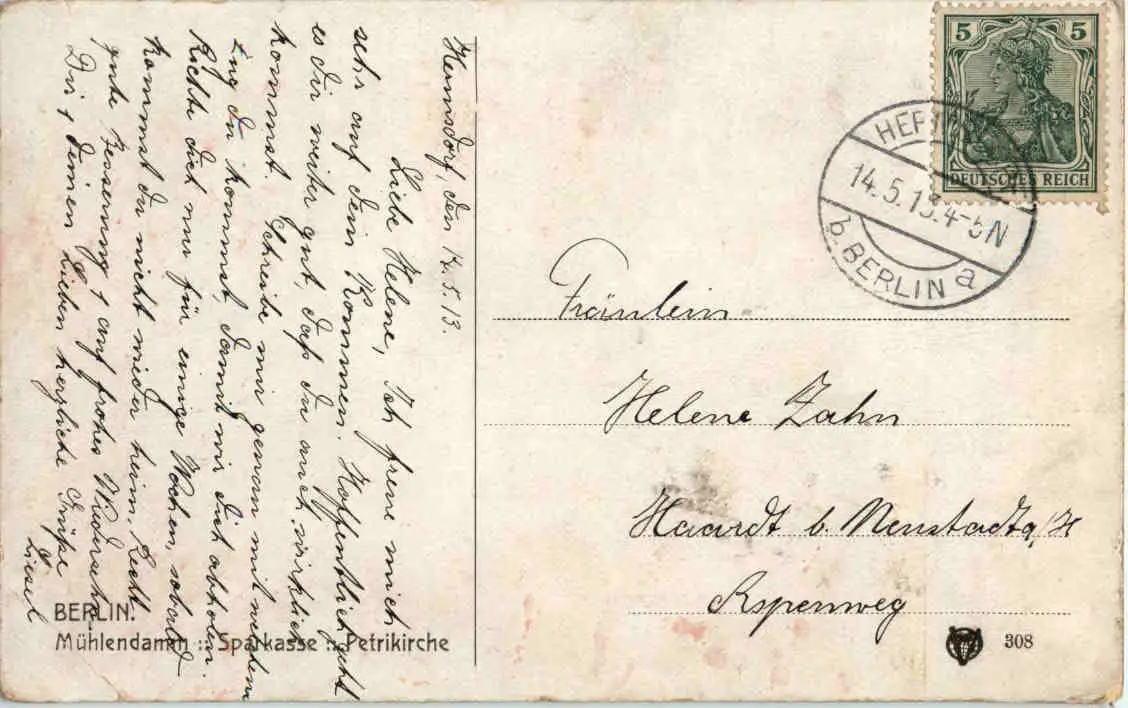 Hermsdorf, den 14.5.13.
Liebe Helene, Ich freue mich
sehr auf dein Kommen. Hoffentlich geht
es dir weiter gut, daß du auch wirklich
kommst. Schreibe mir genau mit welchem
Zug du kommst, damit wir dich abholen.
Richte dich nur für einige Wochen, sobald
kommst du nicht wieder heim. Recht
gute Besserung & auf frohes Wiedersehn
Dir & deinen Lieben herzliche Grüße
Liesel
BERLIN.
Mühlendamm :: Sparkasse :: Petrikirche
5 5
DEUTSCHES REICH
14.5.13.4-5N
b. BERLIN a
Fräulein
Helene Zahn
Haardt b. Neustadt a/H
Aspenweg
308